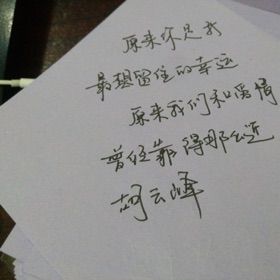 原来你是我
最想留住的幸运
原来我们和爱情
曾经靠得那么近
胡云峰